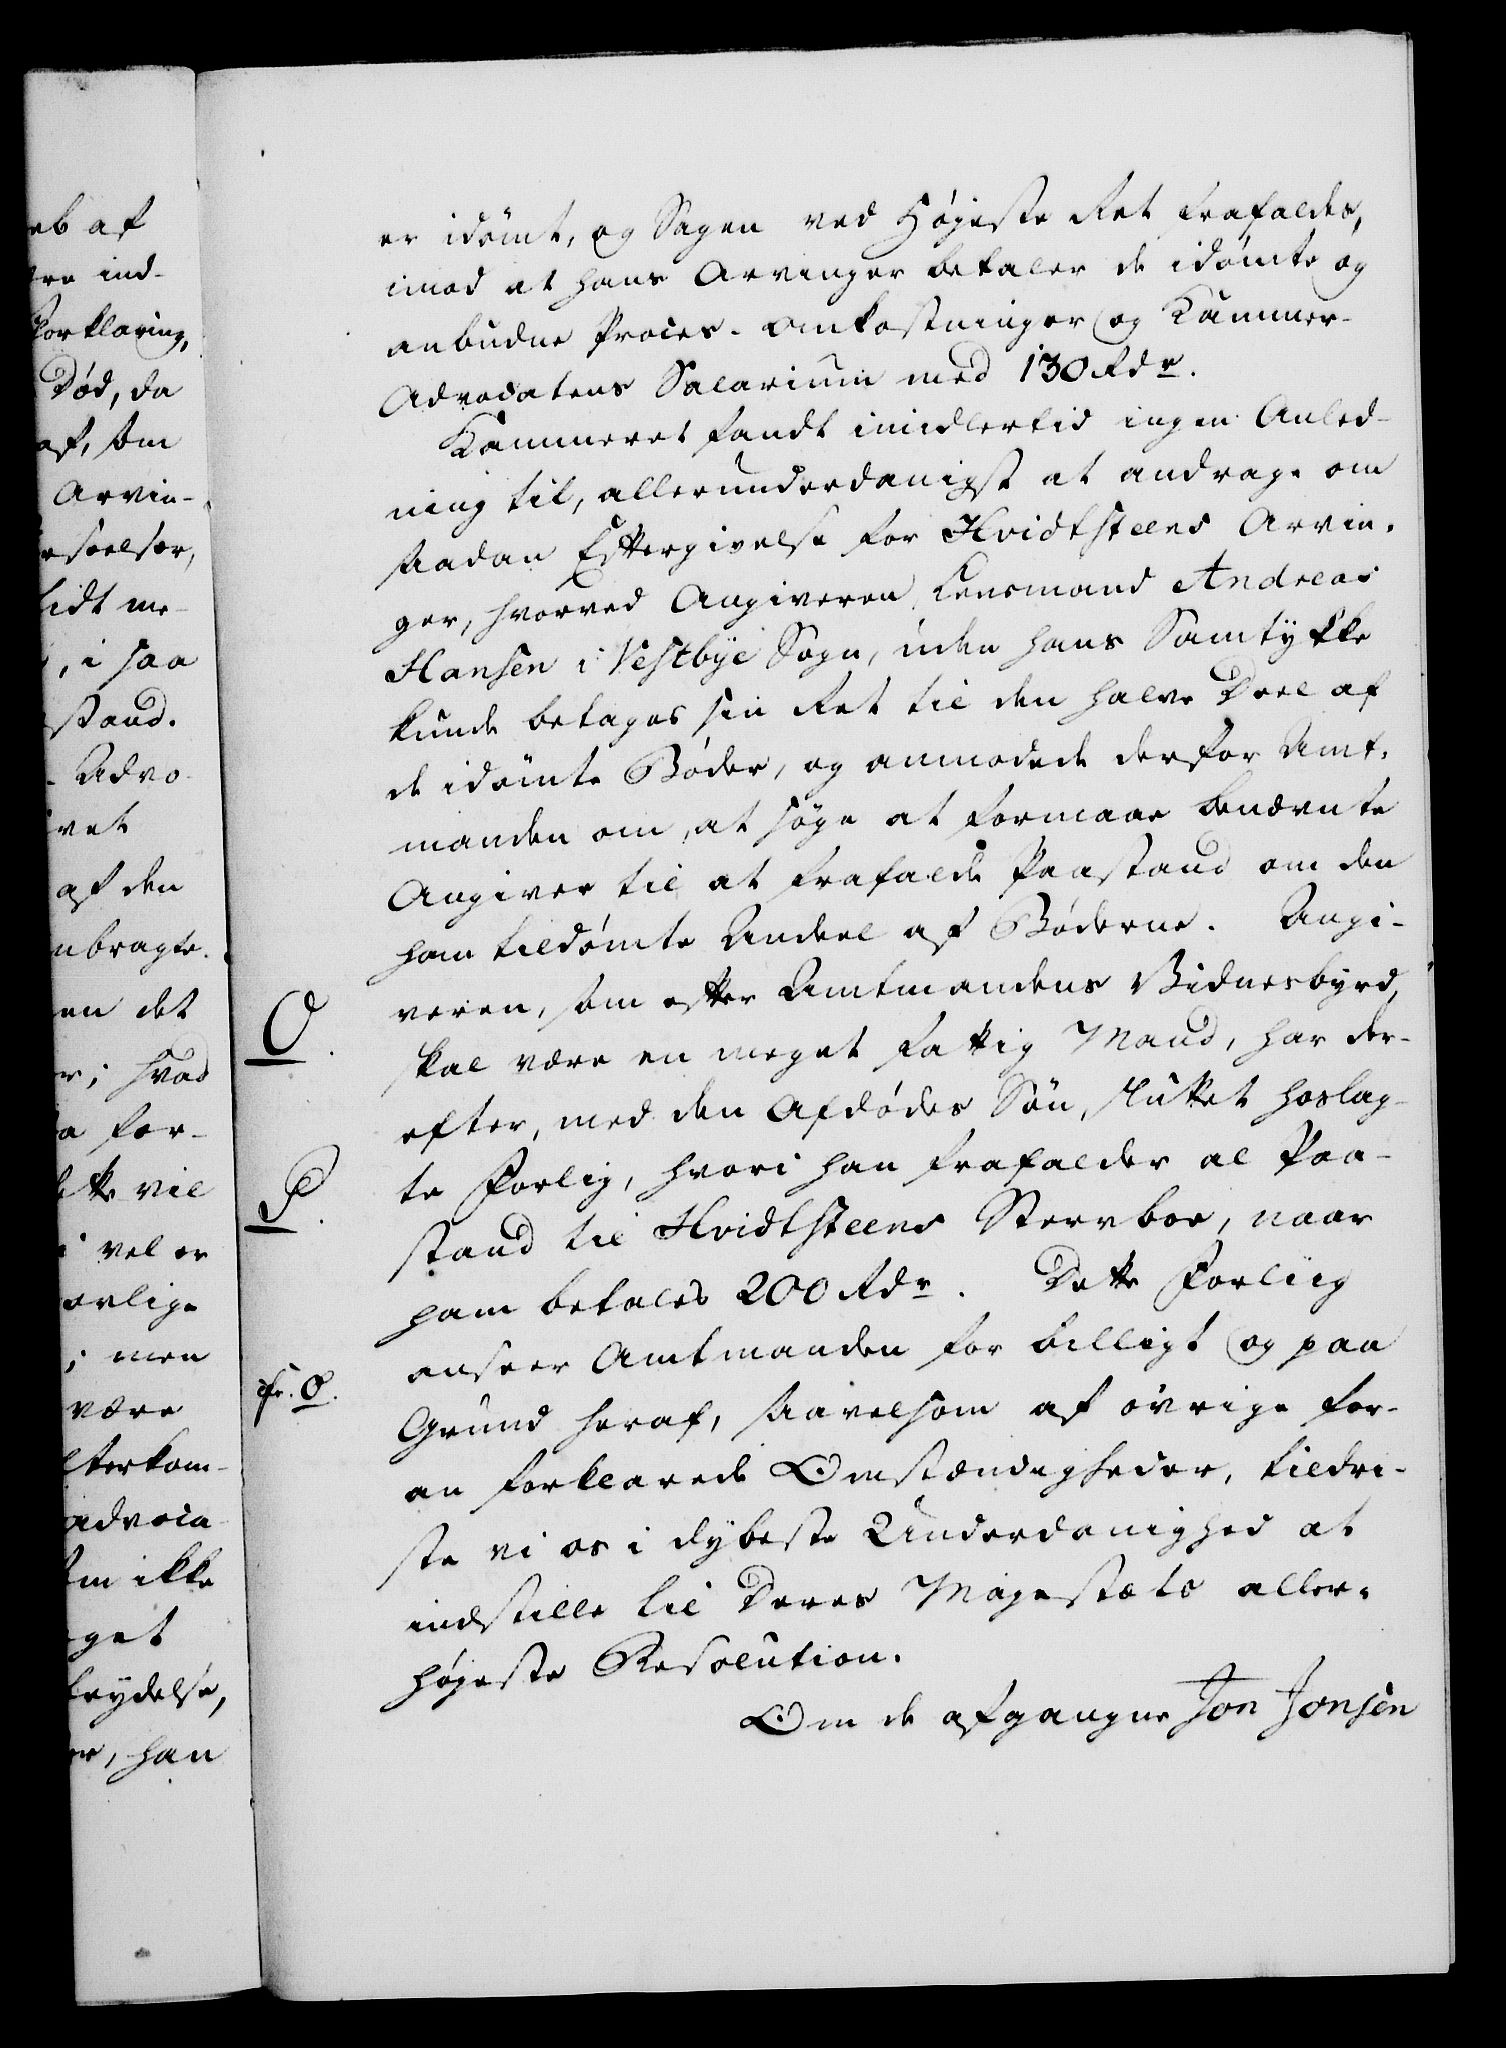 eb af
re ind-
Forklaring,
Død, da
af, som
Arvin-
lidt me-
, i saa
stand.
Advo-
vet
af den
nbragte.
en det
r; hvad
a for-
tte vil
i vel er
orlige
; men
være
lterkom-
advoca-
om ikke
get
brydelse,
er, han
er idømt, og Sagen ved Højeste Ret frafaldes,
imod at hans Arvinger betaler de idømte og
anbudne Proces-Omkostninger og Kammer-
Advocatens Salarium med 130 Rdr.
Kammeret fandt imidlertid ingen Anled-
ning til, allerunderdanigst at andrage om
saadan Eftergivelse for Hvidtsteens Arvin-
ger, hvorved Angiveren, Lensmand Andreas
Hansen i Vestbye Sogn, uden hans Samtykke
kunde betages sin Ret til den halve Deel af
de idømte Bøder, og anmodede derfor Amt-
manden om, at søge at formaae benævnte
Angiver til at frafalde Paastand om den
ham tildømte Andeel af Bøderne. Angi-
O. veren, som efter Amtmandens Vidnesbyrd,
skal være en meget fattig Mand, har der-
efter, med den Afdødes Søn, sluttet hoslag-
P. te Forlig, hvori han frafalder al Paa-
stand til Hvidtsteens Stervboe, naar
ham betales 200 Rdr. Dette Forliig
cfr. O. anseer Amtmanden for billigt og paa
Grund heraf, saavelsom af øvrige for-
an forklarede Omstændigheder, tildri-
ste vi os i dybeste Underdanighed at
indstille til Deres Majestæts aller-
højeste Resolution.
Om de afgangne Jon Jonsen